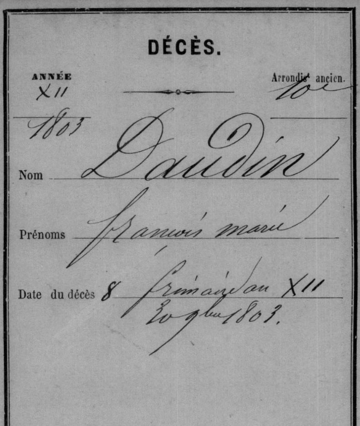 DÉCÈS.
ANNÉE
XII
1803
Arrondist ancien.
10e
Nom Daudin
Prénoms françois marie
Date du décès 8 frimaire an XII
30 9bre 1803.